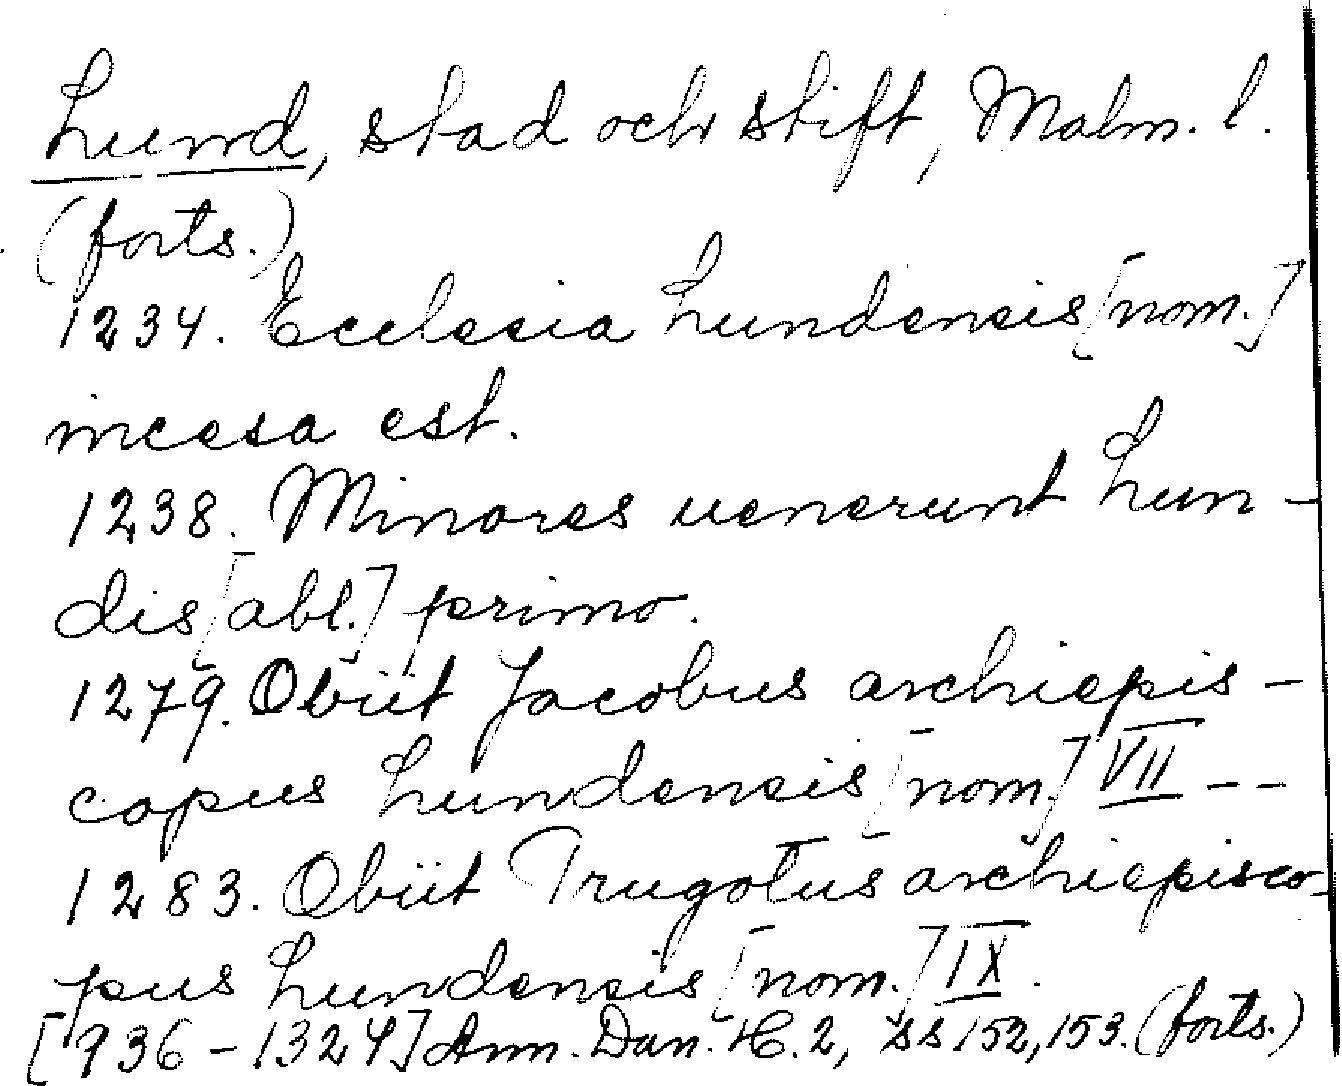 Lund, stad och stift, Malm. l.
(forts.)
1234. Ecclesia Lundensis [nom.]
incesa est.
1238. Minores uenerunt Lun-
dis [abl.] primo.
1279. Obiit Jacobus archiepis-
copus Lundensis [nom.] VII --
1283. Obiit Trugotus archiepisco-
pus Lundensis [nom.] IX.
[936-1324] Ann. Dan. H. 2, ss 152, 153. (forts.)